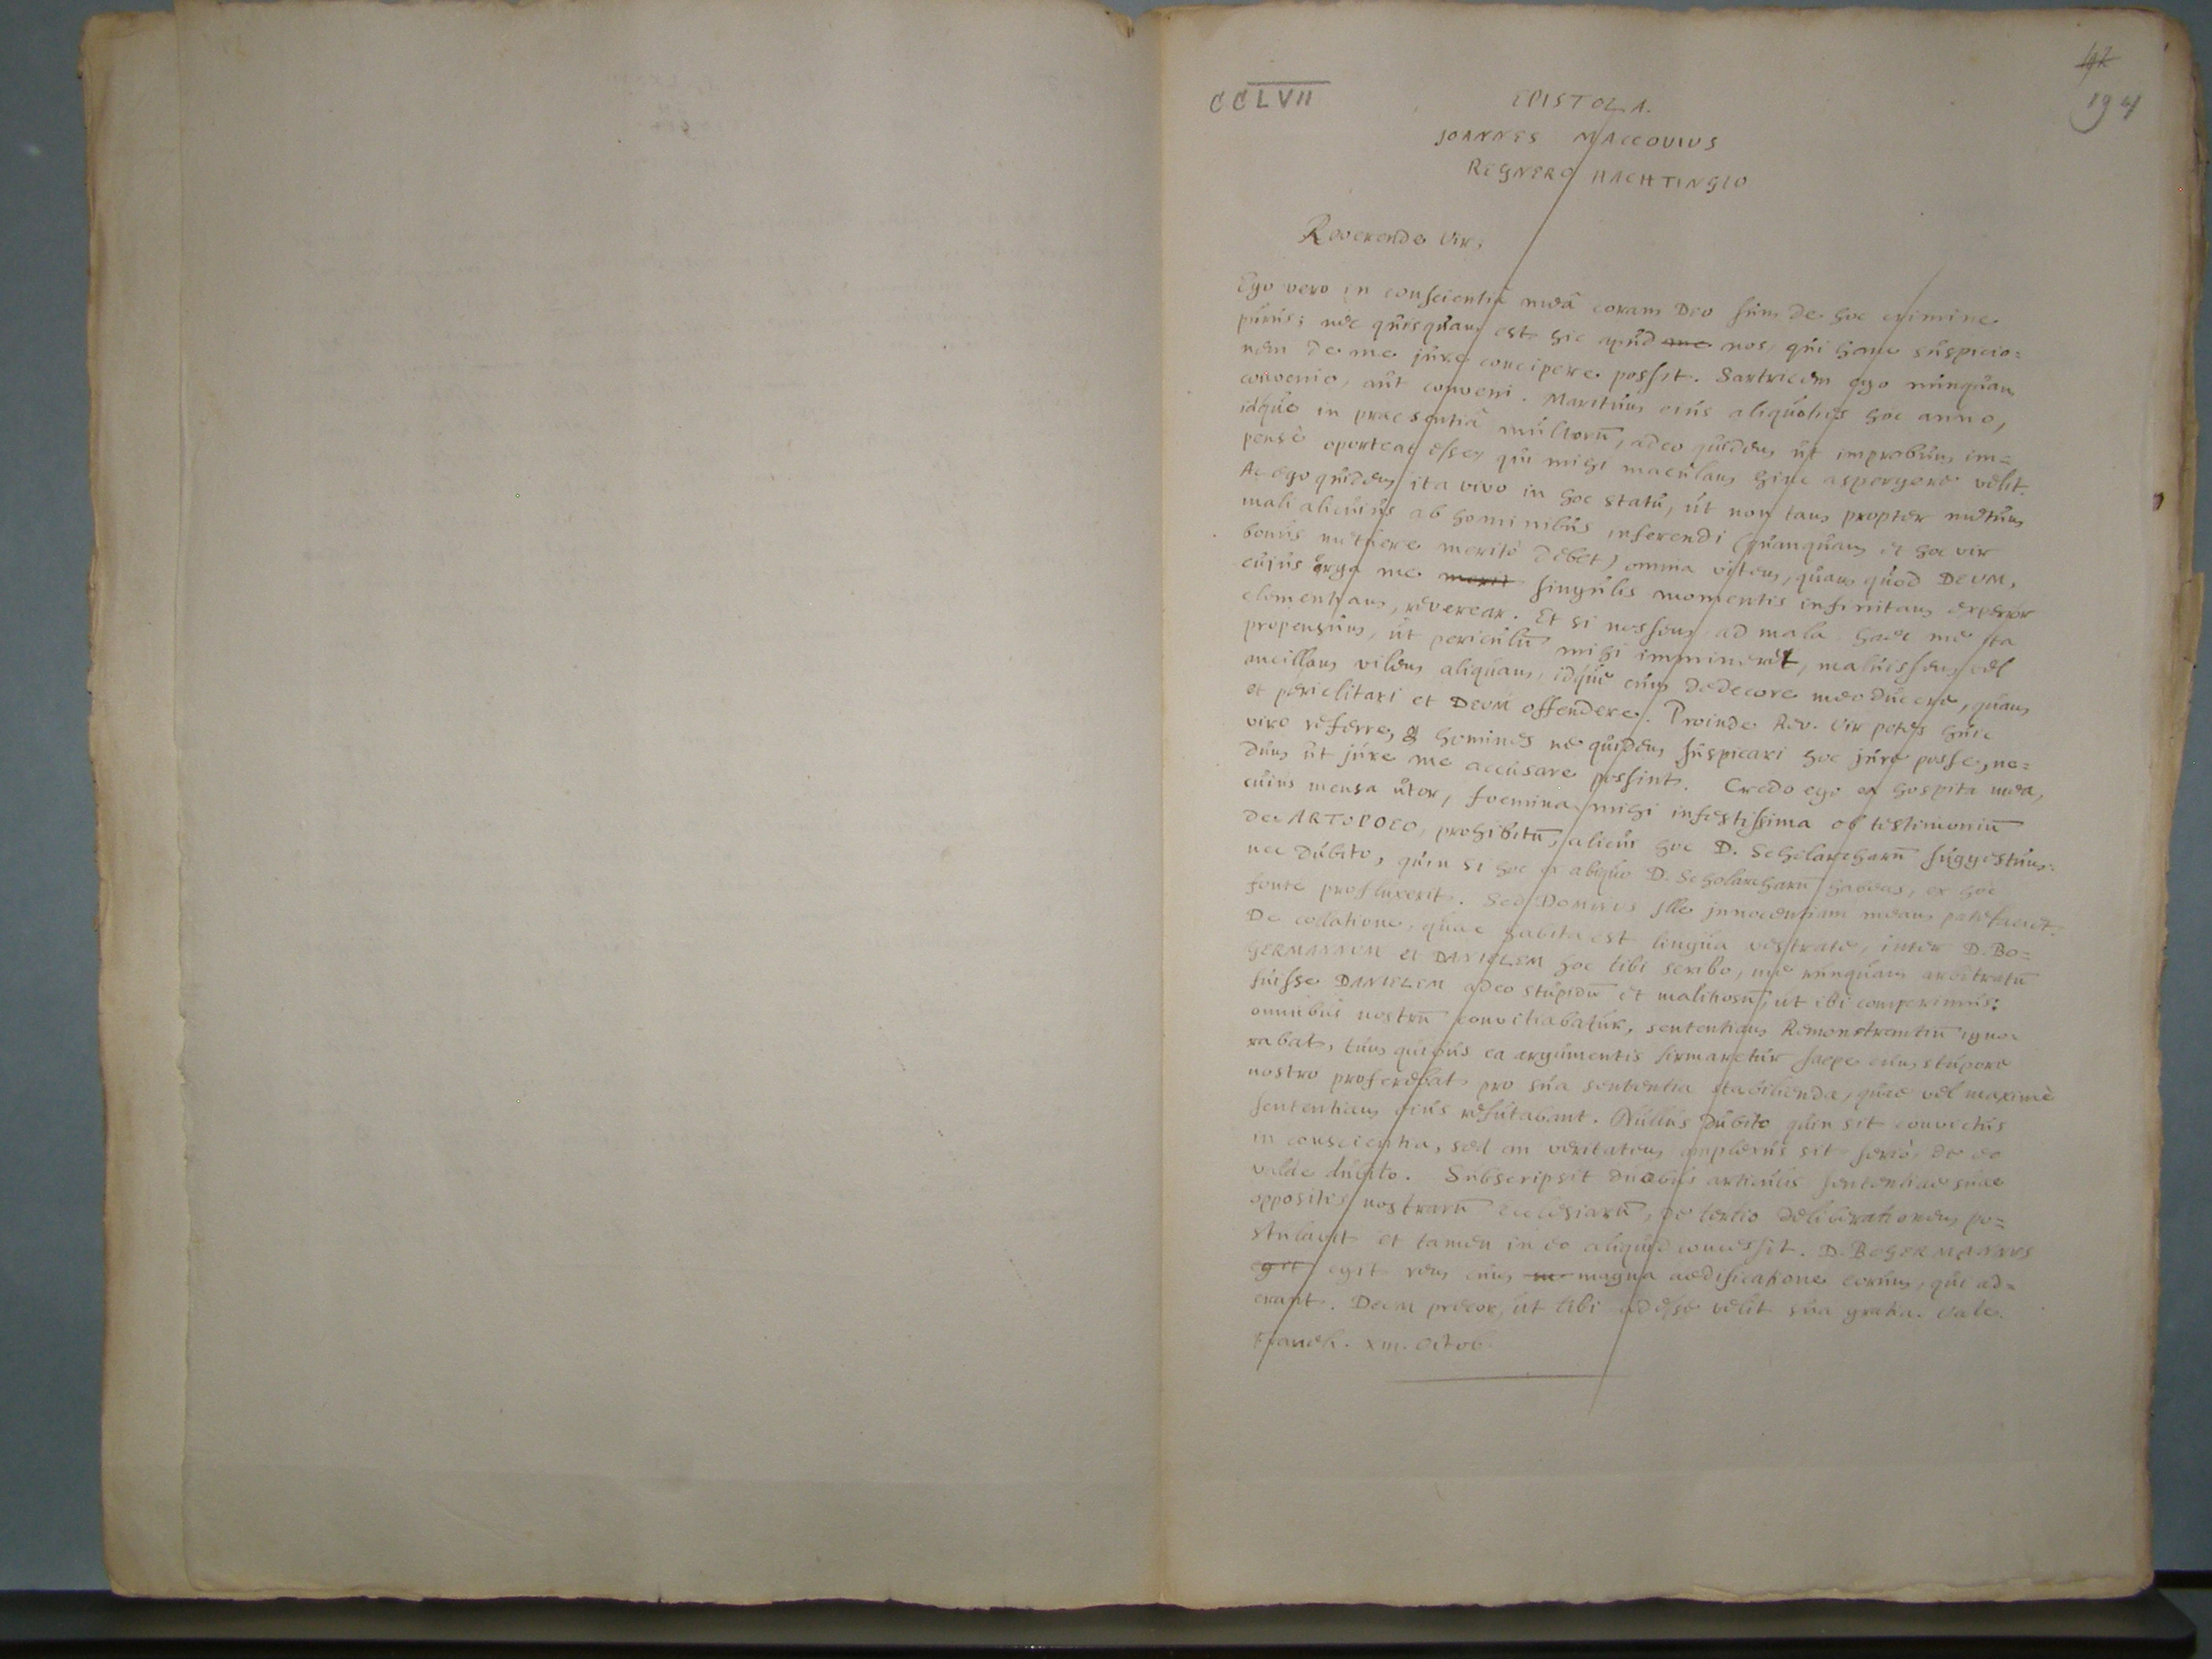 194
CCLVII
EPISTOLA.
JOANNES MACCOVIUS
REGNERO HACHTINGIO
Reverende Vir,
Ego vero in conscientiâ meâ coram Deo sum de hoc crimine
purus; nec quisquam est hic apud me nos, qui hanc suspicio=
nem de me jure concipere possit. Sartricem ego nunquam
convenio, aut conveni. Maritum eius aliquoties hoc anno,
idque in praesentiâ multorū, adeo quidem ut improbum im=
pensè oporteat esse, qui mihi maculam hinc aspergere velit.
Ac ego quidem ita vivo in hoc statu, ut non tam propter metum
mali alicuius ab hominibus inferendi (quanquam et hoc vir
bonus metuere meritò debet) omnia vitem, quam quod DEUM,
cujus erga me merit singulis momentis infinitam experior
clementiam, reverear. Et si nossem ad mala haec me ita
propensum, ut periculū mihi immineret, maluissem vel
ancillam vilem aliquam, idque cum dedecore meo ducere, quam
et periclitari et DEUM offendere. Proinde Rev. Vir potes huic
viro referre, homines ne quidem suspicari hoc jure posse, ne=
dum ut jure me accusare possint. Credo ego ex hospita mea,
cuius mensa utor, foemina mihi infestissima ob testimoniū
de ARTOPOEO, prohibitū, alicui hoc D. Scholarcharū suggestum.
nec dubito, quin si hoc ex aliquo D. Scholarcharū habeas, ex hoc
fonte profluxerit. Sed Dominus ille innocentiam meam patefaciet.
De collatione, quae habita est lingua vestrate, inter D. Bo=
GERMANNUM et DANIELEM hoc tibi scribo, me nunquam arbitratū
fuisse DANIELEM adeo stupidū et malitiosū, ut ibi comperimus:
omnibus nostrū convitiabatur, sententiam Remonstrantiū igno=
rabat, tum quibus ea argumentis firmaretur saepe cum stupore
nostro proferebat pro sua sententia stabilienda, quae vel maximè
sententiam eius refutabant. Nullus dubito quin sit convictus
in conscientia, sed an veritatem amplexus sit seriò, de eo
valde dubito. Subscripsit duobus articulis sententiae suae
oppositis nostrarū ecclesiarū, de tertio deliberationem po=
stulavit et tamen in eo aliquid concessit. D. BOGERMANNUS
egit egit rem cum magna aedificatione eorum, qui ad=
erant. Deum precor, ut tibi adesse velit sua gratia. Vale.
Franek. XIII. Octob.